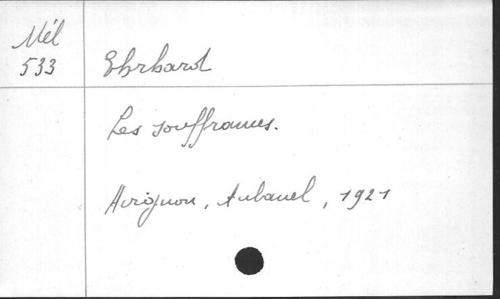 Mél
533
Ehrhard
Les souffrances.
Avignon, Aubanel, 1921